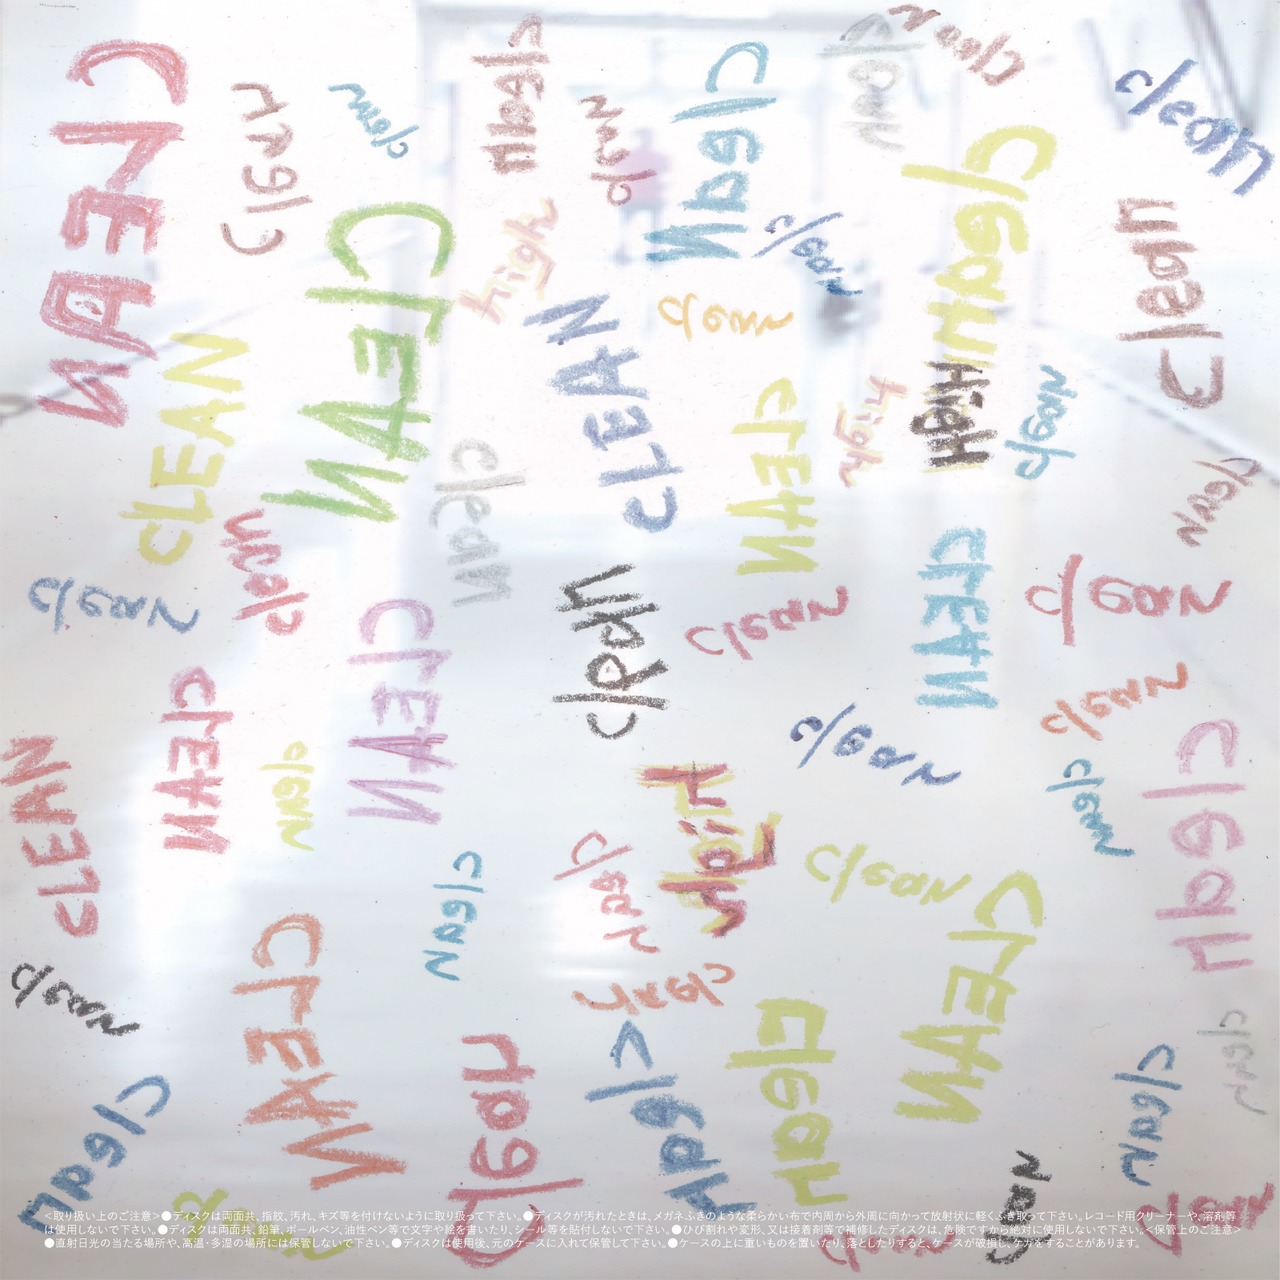 clean
clean
CLEAN
clean
clean
clean
clean
clean
clean
clean
CLEAN
high
clean
clean
clean
CLEAN
CLEAN
clean
CLEAN
High
high
clean
clean
clean
clean
CLEAN
clean
clean
clean
clean
CLEAN
clean
CLEAN
clean
clean
CLEAN
clean
CLEAN
clean
clean
clean
High
clean
clean
clean
clean
clean
CLEAN
CLEAN
clean
clean
clean
clean
clean
clean
clean
clean
clean
<取り扱い上のご注意>●ディスクは両面共、指紋、汚れ、キズ等を付けないように取り扱って下さい。●ディスクが汚れたときは、メガネふきのような柔らかい布で内周から外周に向かって放射状に軽くふき取って下さい。レコード用クリーナーや、溶剤等
は使用しないで下さい。●ディスクは両面共、鉛筆、ボールペン、油性ペン等で文字や絵を書いたり、シール等を貼付しないで下さい。●ひび割れや変形、又は接着剤等で補修したディスクは、危険ですから絶対に使用しないで下さい。<保管上のご注意>
●直射日光の当たる場所や、高温・多湿の場所には保管しないで下さい。●ディスクは使用後、元のケースに入れて保管して下さい。●ケースの上に重いものを置いたり、落としたりすると、ケースが破損し、ケガをすることがあります。